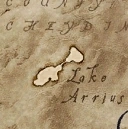 CHEYDIN
Lake
Arrius